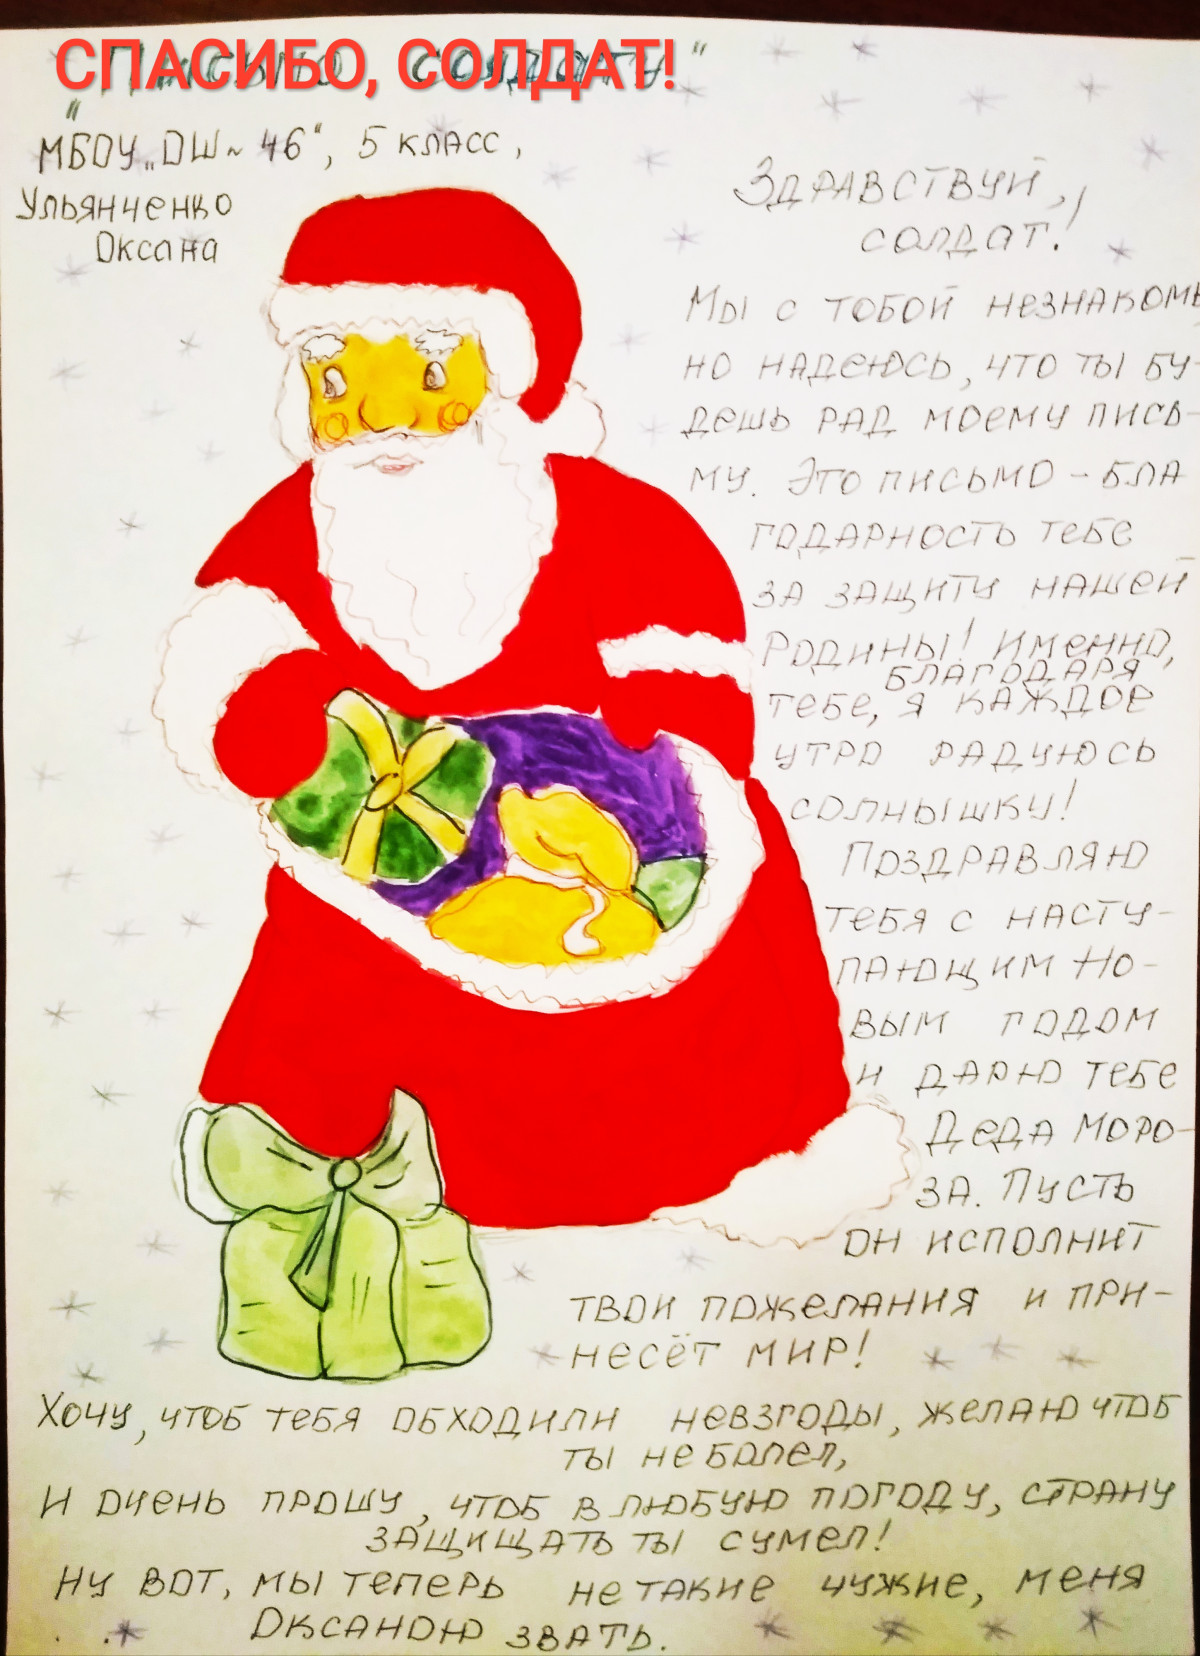 СПАСИБО, СОЛДАТ!
"Письмо солдату"
МБОУ „ОШ ~ 46", 5 класс,
Ульянченко
Оксана
Здравствуй,
солдат!
Мы с тобой незнакомы
но надеюсь, что ты бу-
дешь рад моему пись-
му. Это письмо - бла
годарность тебе
за защиту нашей
Родины! Именно,
благодаря
тебе, я каждое
утро радуюсь
солнышку!
Поздравляю
тебя с насту-
пающим Но-
вым годом
и дарю тебе
Деда Моро-
за. Пусть
он исполнит
твои пожелания и при-
несёт мир!
Хочу, чтоб тебя обходили невзгоды, желаю чтоб
ты не болел,
И очень прошу, чтоб в любую погоду, страну
защищать ты сумел!
Ну вот, мы теперь не такие чужие, меня
Оксаною звать.